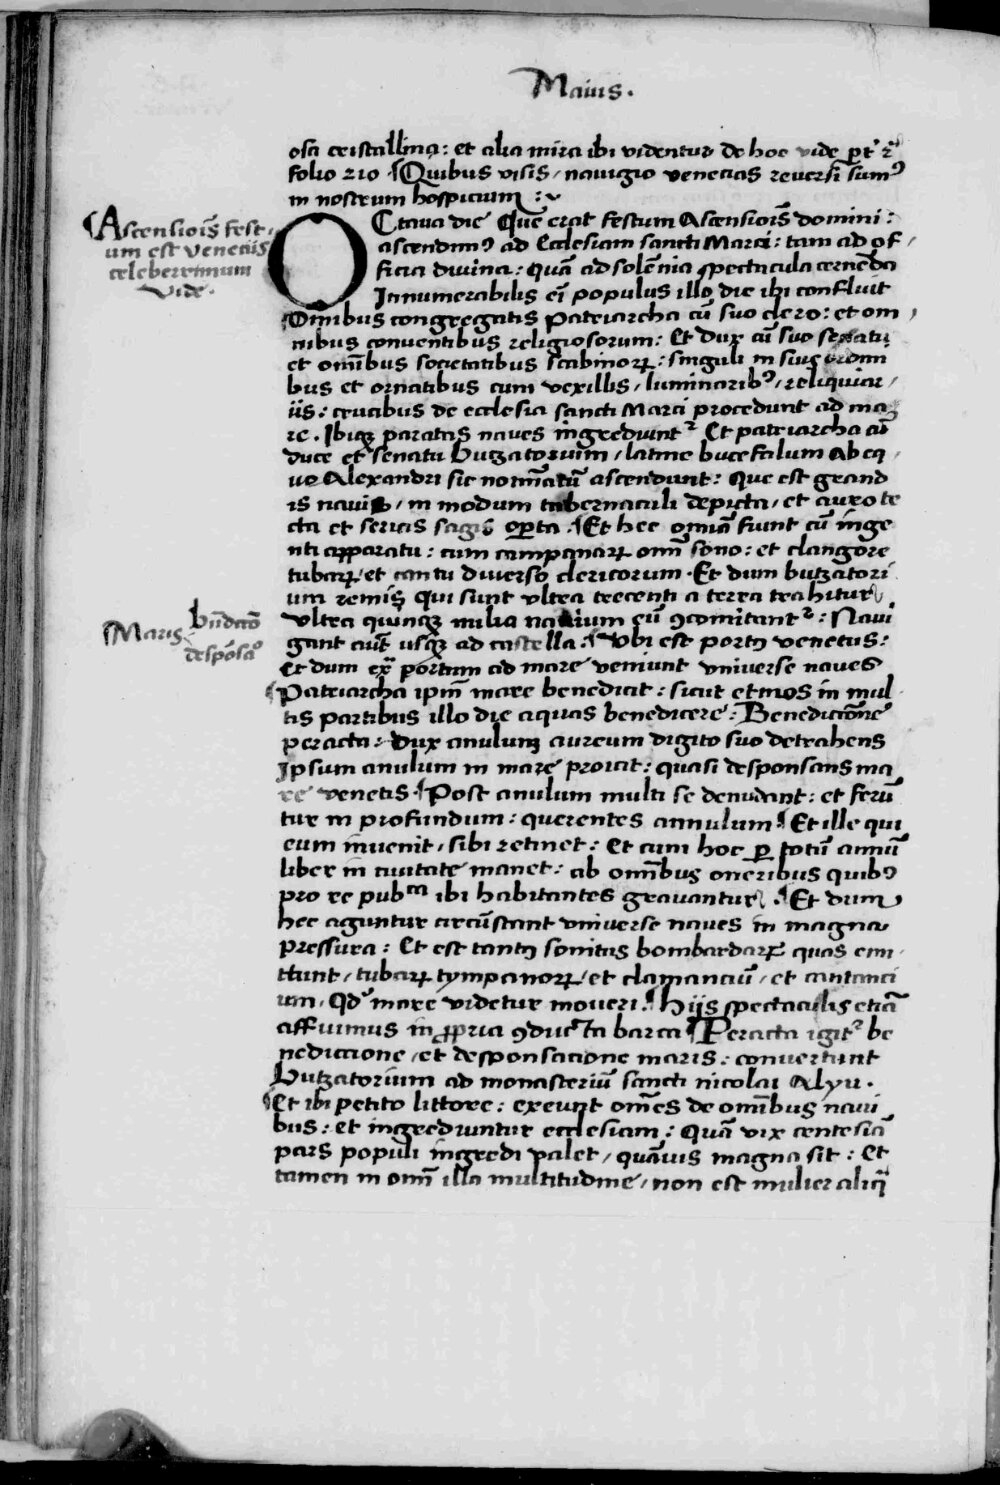 Maius.
osa cristallina: et alia mira ibi videntur de hoc vide pt' 2ᵃ
folio 210 · ¶Quibus visis / navigio venecias reuersi sumꝰ
in nostrum hospicium :~
¶Ascensiois̄ fest,
um est venetiis
celeberrimum
vide.
OCtaua die Que erat festum Ascensiois̄ domini:
ascendimꝰ ad Ecclesiam sancti Marci: tam ad of,
ficia diuina: quā ad solēnia spectacula cernēda
Innumerabilis ei̅ populus illo die ibi confluit
Omibus congregatis Patriarcha cū suo clero: et om,
nibus conuentibus religiosorum: Et dux cū suo senatu
et omībus societatibus scabinorꝝ: singuli in suis ordini
bus et ornatibus cum vexillis, luminaribꝰ, reliquiar,
iis: crucibus de ecclesia sancti Marci procedunt ad ma
re. Ibiqꝫ paratas naues ingrediuntᵗ Et patriarcha cū
duce et senatu butzatorium, latine bucefalum Ab eq,
uo Alexandri sic nominatū ascendunt: Que est grand
is nauis, in modum tabernaculi depicta, et auro te
cta et sericis sagis opta. ¶Et hec omnia fiunt cū inge
nti apparatu: cum campanarꝝ omī sono: et clangore
tubarꝝ, et cantu diuerso clericorum. Et dum butzatori
um remis̄ qui sunt vltra trecenti a terra trahitur
vltra quinqꝫ milia nauium eū ꝯcomitantᵗ: Naui
Maris bn̄dictō
despōsacō
gant aūt usqꝫ ad castella. ¶Vbi est portꝰ venetus:
Et dum ex̄ portum ad mare veniunt vniuerse naues
¶Patriarcha ipm̄ mare benedicit: sicut et mos in mul
tis partibus illo die aquas benedicere: Benedictōne
peracta: dux anulum aureum digito suo detrahens
Ipsum anulum in mare proicit: quasi desponsans ma
re venetis. ¶Post anulum multi se denudant: et ferū
tur in profundum: querentes annulum. ¶Et ille qui
eum inuenit, sibi retinet: Et cum hoc ꝑ totū annū
liber in ciuitate manet: ab omībus oneribus quibꝰ
pro re pubᶜᵃ ibi habitantes grauantur. ¶Et dum
hec aguntur circūstant vniuerse naues in magna
pressura: Et est tantꝰ sonitus bombardarꝝ quas emi
ttunt, tubarꝝ tympanorꝝ, et clamanciū, et cantanci
um, Qd' mare videtur moueri. ¶Hiis spectaculis etiā
affuimus in ꝓpria ꝯducta barca ¶Peracta igitᵗ be
nedictione, et desponsacione maris: conuertunt
butzatorium ad monasteriū sancti nicolai Alyu.
¶Et ibi petito littore: exeunt omēs de omībus naui
bus: et ingrediuntur ecclesiam: Quā vix centesiā
pars populi ingredi valet, quāuis magna sit: Et
tamen in omī illa multitudine, non est mulier aliqꝫ